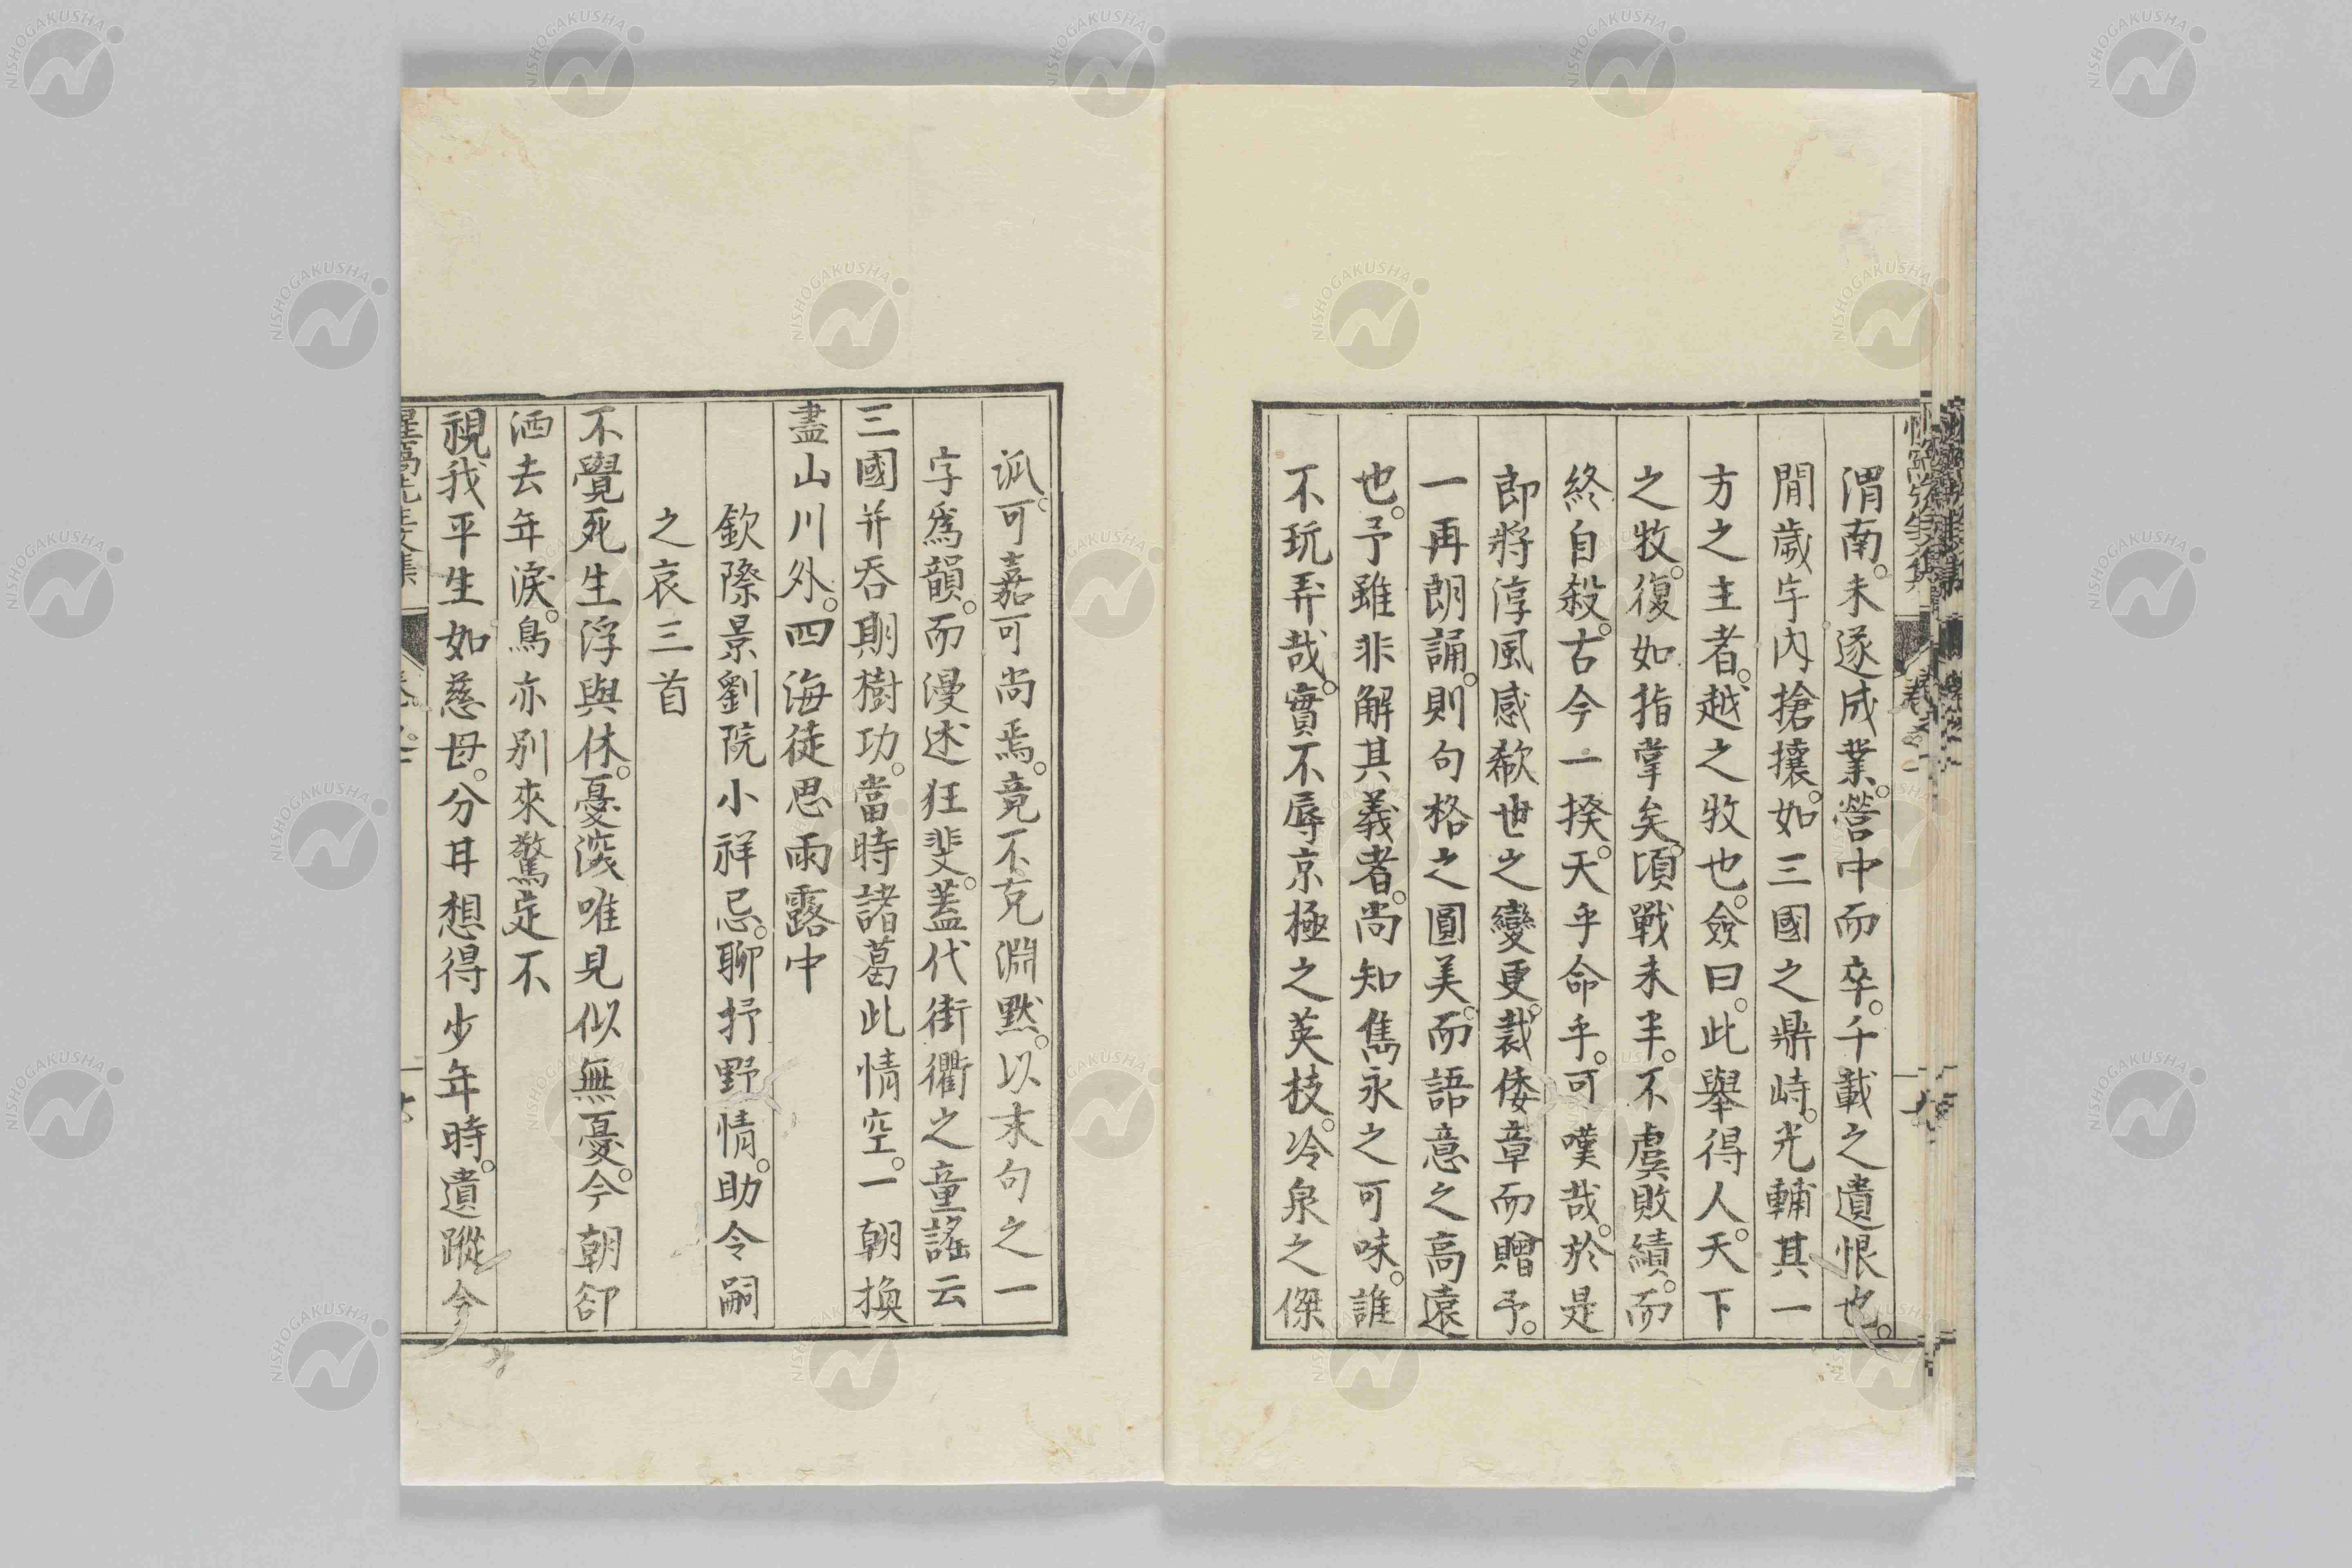 渭南。未遂成業。營中而卒。千載之遺恨也。
間歲宇內搶攘。如三國之鼎峙。光輔其一
方之主者。越之牧也。僉曰。此舉得人。天下
之牧。復如指掌矣。頃戰未半。不虞敗績。而
終自殺。古今一揆。天乎命乎。可嘆哉。於是
郎將淳風感欷世之變更。裁倭章而贈予。
一再朗誦。則句格之圓美。而語意之高遠
也。予雖非解其義者。尚知雋永之可味。誰
不玩弄哉。實不辱京極之英枝。冷泉之傑
派。可嘉可尚焉。竟不克淵默。以末句之一
字爲韻。而漫述狂斐。蓋代街衢之童謠云
三國并吞期樹功。當時諸葛此情空。一朝換
盡山川外。四海徒思雨露中
欽際景劉院小祥忌。聊抒野情。助令嗣
之哀三首
不覺死生浮與休。憂深唯見似無憂。今朝卻
洒去年淚。鳥亦別來驚定不
視我平生如慈母。分甘想得少年時。遺蹤今
惺窩先生文集
NISHOGAKUSHA